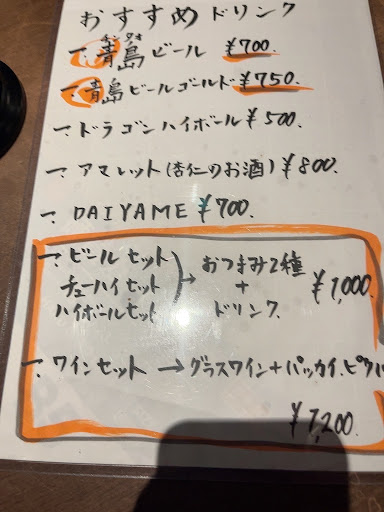 おすすめドリンク
チンタオ
一、青島ビール ¥700.
一、青島ビールゴールド ¥750.
一、ドラゴンハイボール ¥500.
一、アマレット(杏仁のお酒) ¥800.
一、DAIYAME ¥700.
一、ビールセット
チューハイセット
ハイボールセット
→ おつまみ2種
+
ドリンク
¥1,000.
一、ワインセット → グラスワイン+パッカイ、ピクル
¥1,200.